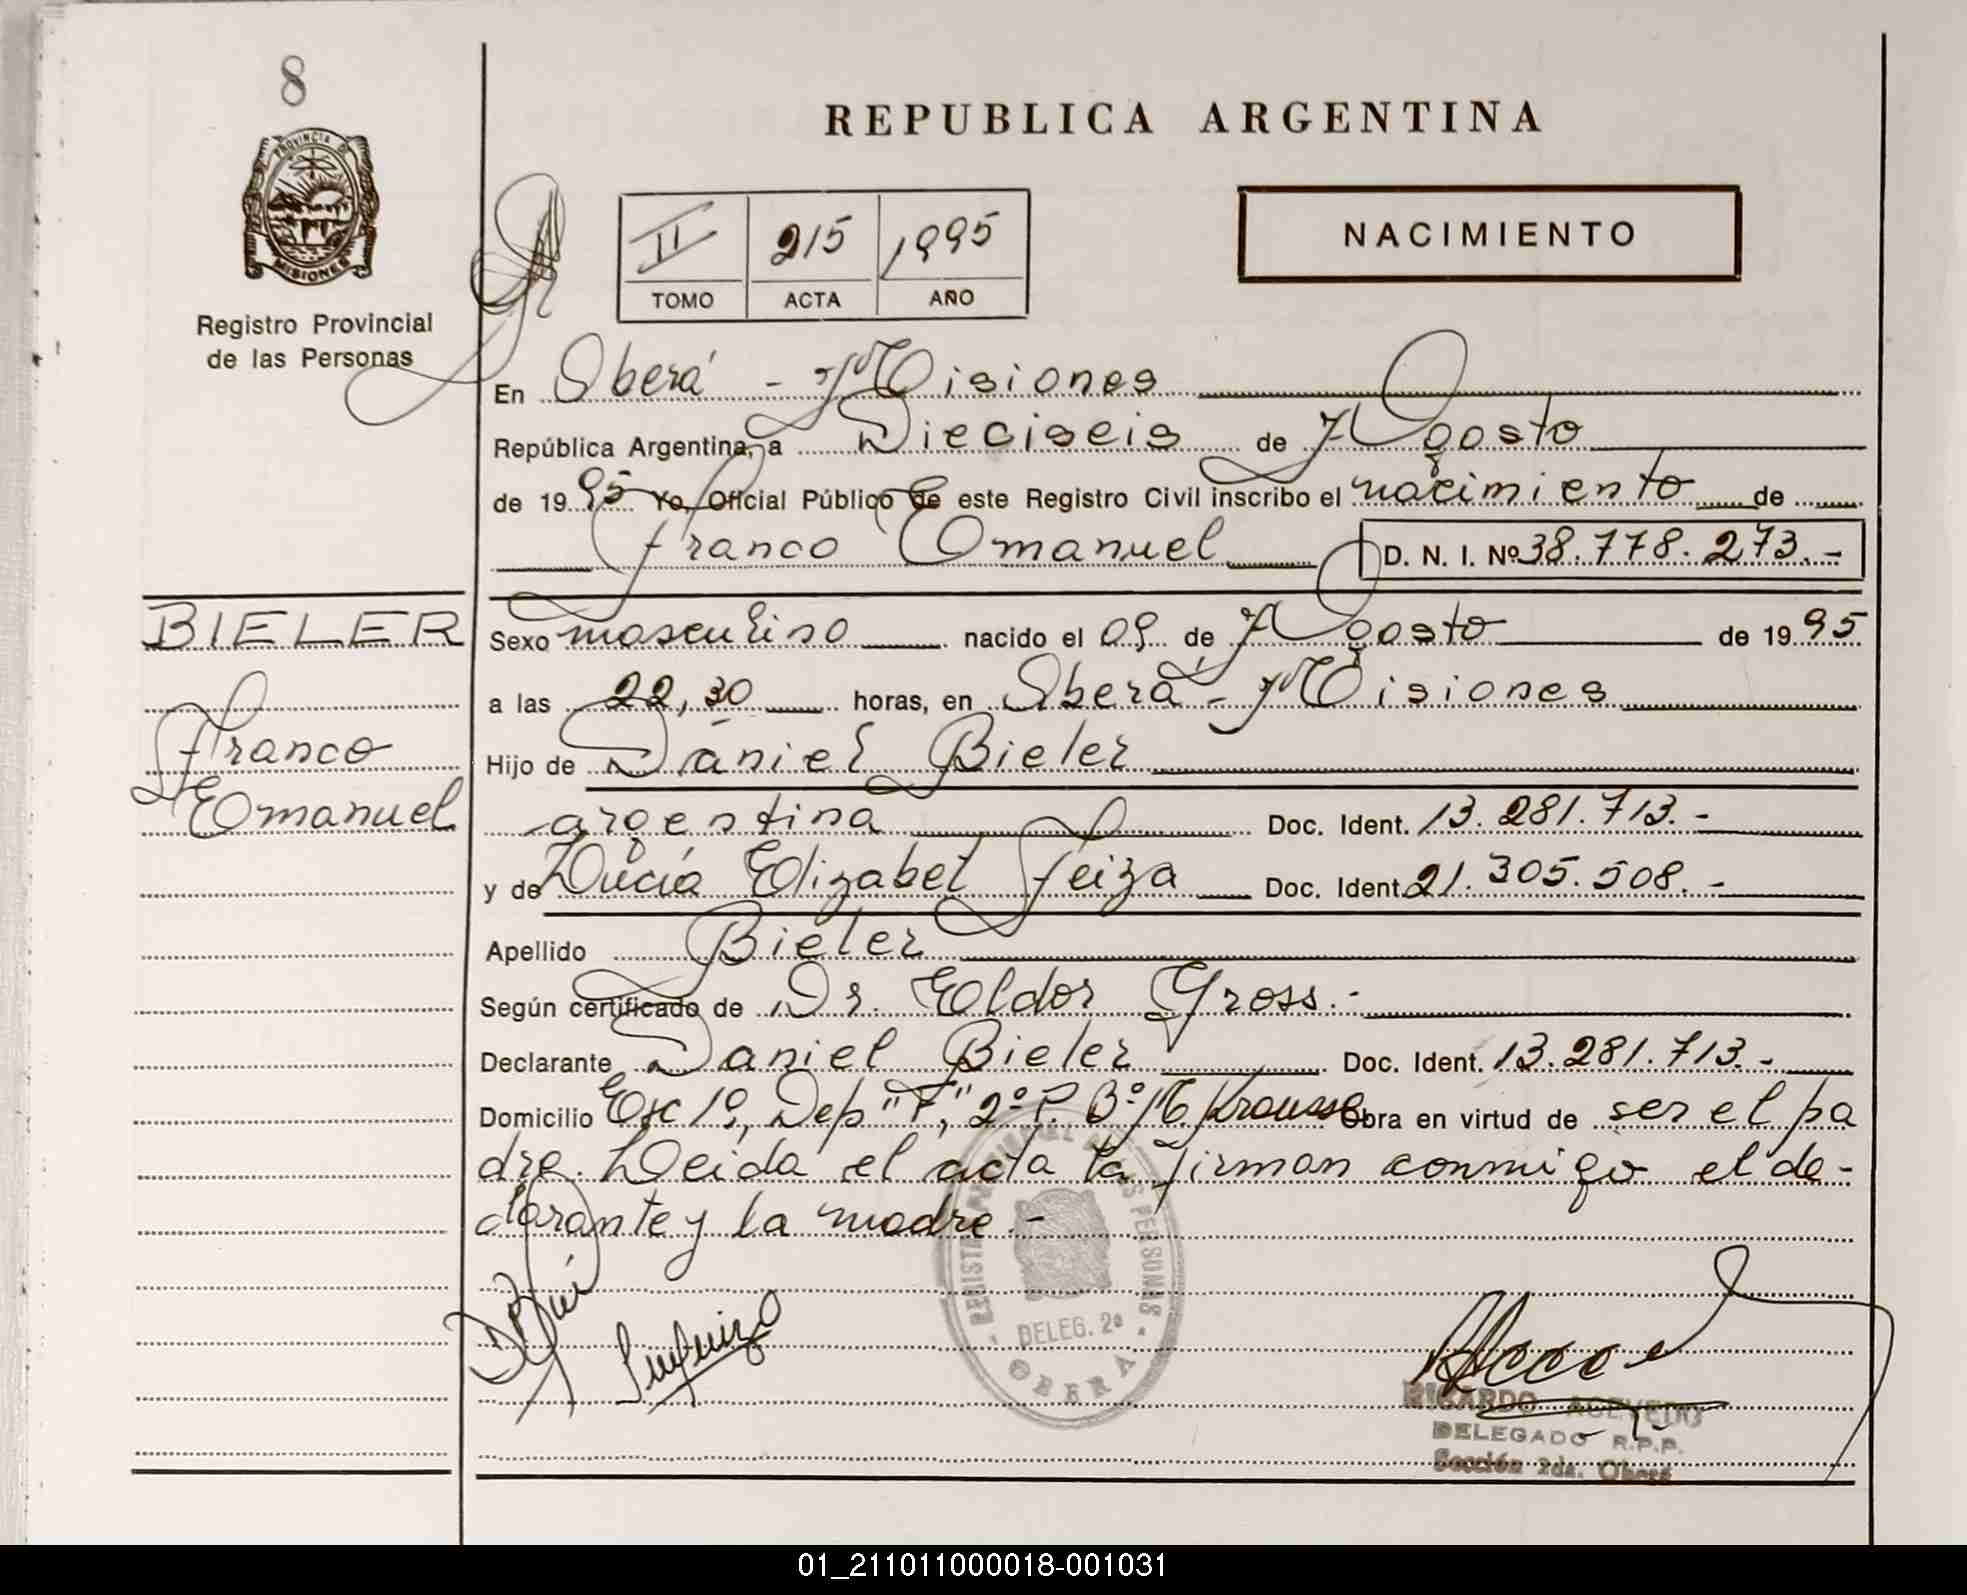 8
REPUBLICA ARGENTINA
PROVINCIA DE
MISIONES
Registro Provincial
de las Personas
II 215 1995
TOMO ACTA AÑO
NACIMIENTO
En Oberá - Misiones
República Argentina, a Dieciseis de Agosto
de 1995 Yo, Oficial Público de este Registro Civil inscribo el nacimiento de
Franco Emanuel D. N. I. Nº 38.778.273.-
BIELER
Franco
Emanuel
Sexo masculino nacido el 09 de Agosto de 1995
a las 22,30 horas, en Oberá - Misiones
Hijo de Daniel Bieler
argentina Doc. Ident. 13.281.713.-
y de Lucía Elizabet Feiza Doc. Ident. 21.305.508.-
Apellido Bieler
Según certificado de Dr. Eldor Gross.-
Declarante Daniel Bieler Doc. Ident. 13.281.713.-
Domicilio Esc 1º, Dep "F", 2º P. Bº Krausse Obra en virtud de ser el pa
dre. Leida el acta la firman conmigo el de-
clarante y la madre.-
REGISTRO PROVINCIAL DE LAS PERSONAS
DELEG. 2ª
OBERA
RICARDO ACEVEDO
DELEGADO R.P.P.
Sección 2da. Oberá
01_211011000018-001031